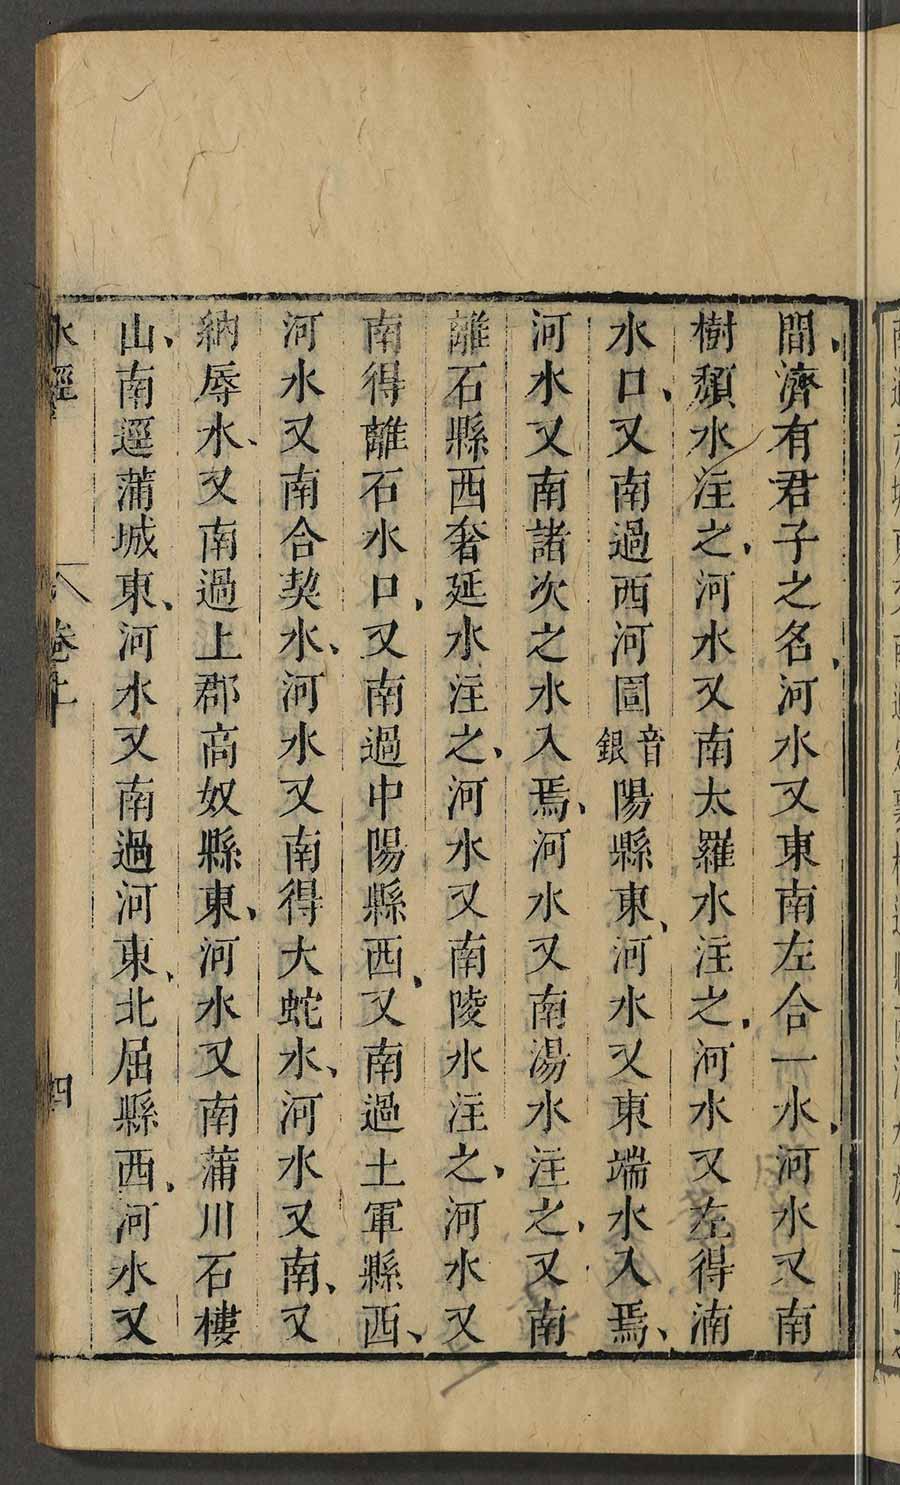 間、濟有君子之名、河水又東南左合一水、河水又南
樹頹水注之、河水又南太羅水注之、河水又左得湳
水口、又南過西河圁音銀陽縣東、河水又東端水入焉、
河水又南諸次之水入焉、河水又南湯水注之、又南
離石縣西奢延水注之、河水又南陵水注之、河水又
南得離石水口、又南過中陽縣西、又南過土軍縣西、
河水又南合契水、河水又南得大蛇水、河水又南、又
納辱水、又南過上郡高奴縣東、河水又南蒲川石樓
山、南逕蒲城東、河水又南過河東、北屈縣西、河水又
水經 卷上 四